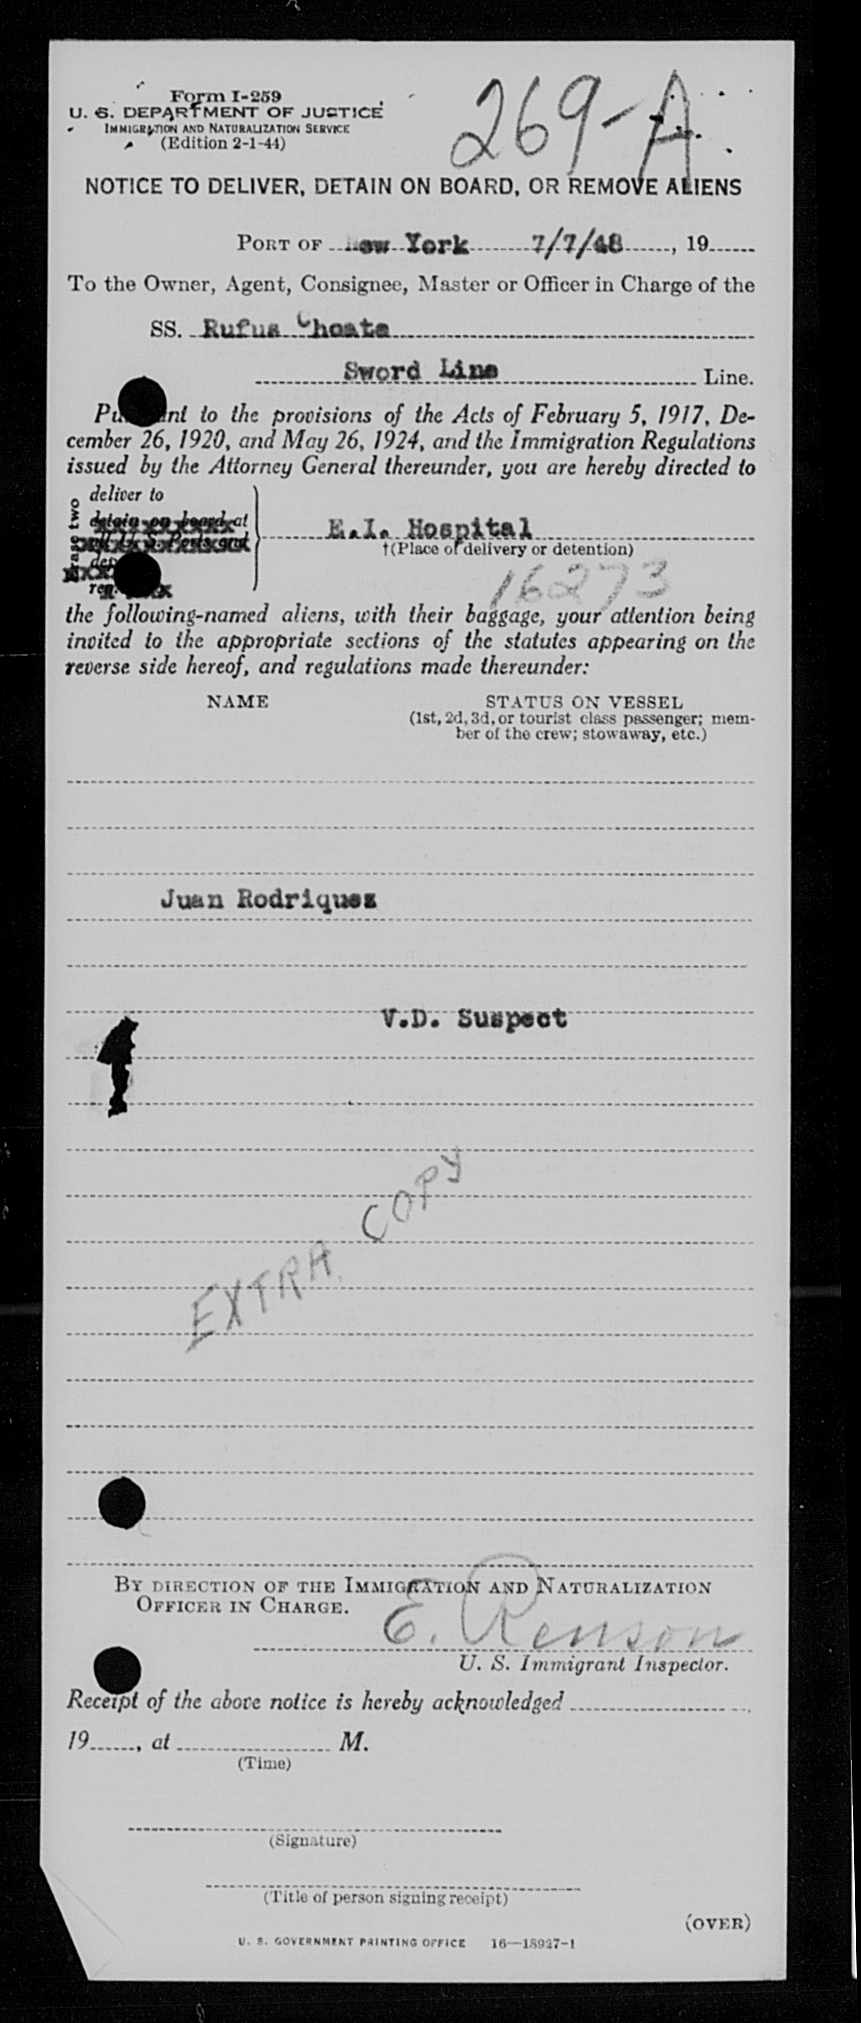 269-A
Form I-259
U. S. DEPARTMENT OF JUSTICE
IMMIGRATION AND NATURALIZATION SERVICE
(Edition 2-1-44)
NOTICE TO DELIVER, DETAIN ON BOARD, OR REMOVE ALIENS
PORT OF New York 7/7/48, 19
To the Owner, Agent, Consignee, Master or Officer in Charge of the
SS. Rufus Choate
Sword Line Line.
Pursuant to the provisions of the Acts of February 5, 1917, De-
cember 26, 1920, and May 26, 1924, and the Immigration Regulations
issued by the Attorney General thereunder, you are hereby directed to
deliver to
detain on board at
E.I. Hospital
†(Place of delivery or detention)
16273
the following-named aliens, with their baggage, your attention being
invited to the appropriate sections of the statutes appearing on the
reverse side hereof, and regulations made thereunder:
NAME STATUS ON VESSEL
(1st, 2d, 3d, or tourist class passenger; mem-
ber of the crew; stowaway, etc.)
Juan Rodriques
V.D. Suspect
EXTRA COPY
BY DIRECTION OF THE IMMIGRATION AND NATURALIZATION
OFFICER IN CHARGE.
E. Renson
U. S. Immigrant Inspector.
Receipt of the above notice is hereby acknowledged
19, at M.
(Time)
(Signature)
(Title of person signing receipt)
(OVER)
U. S. GOVERNMENT PRINTING OFFICE 16—18927-1